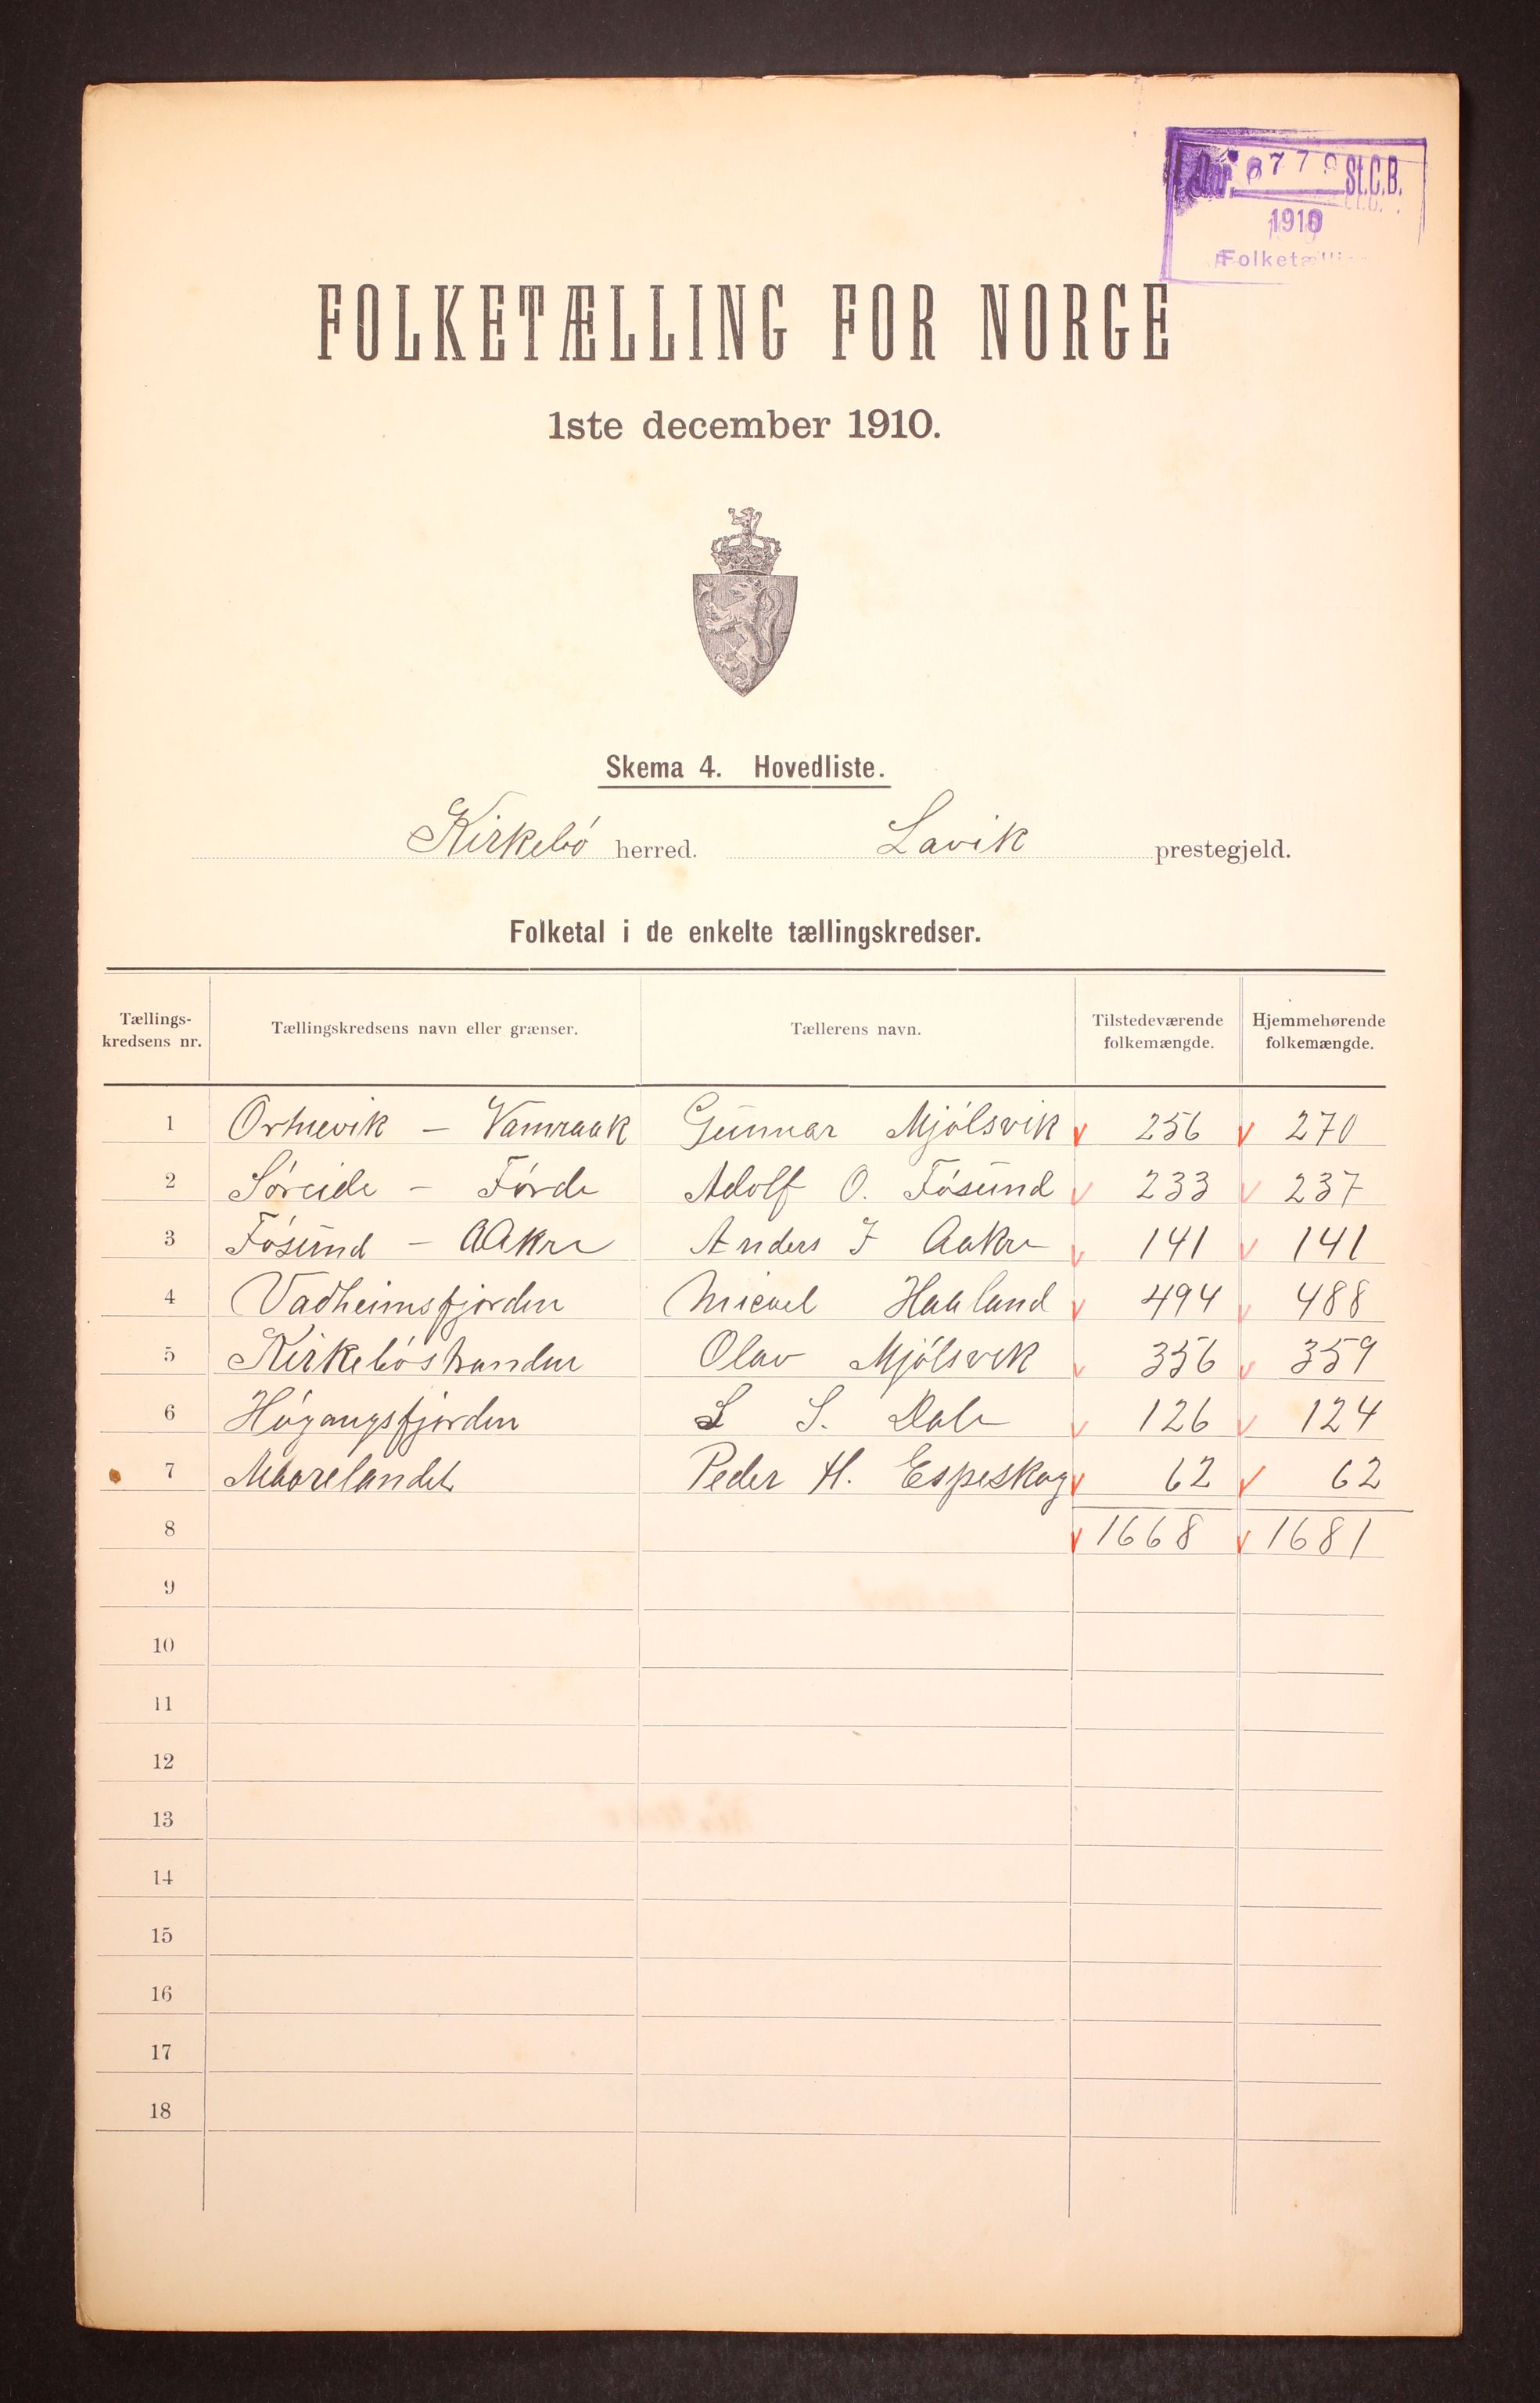 St.C.B.
1910
FOLKETÆLLING FOR NORGE
1ste december 1910.
Skema 4. Hovedliste.
Kirkebó herred. Lavik prestegjeld.
Folketal i de enkelte tællingskredser.
Tællings-kredsens nr. Tællingskredsens navn eller grænser. Tællerens navn. Tilstedeværende folkemængde. Hjemmehørende folkemængde.
1 Ortnevik – Vamraak Gunnar Mjólsvik v 256 v 270
2 Sóreide – Fórde Adolf O. Fósund v 233 v 237
3 Fósund – AAkre Anders J Aakre v 141 v 141
4 Vadheimsfjorden Micael Haaland v 494 v 488
5 Kirkebóstranden Olav Mjólsvik v 356 v 359
6 Hóyangsfjorden S. Dale v 126 v 124
7 Maarelandet Peder H. Espeskog v 62 v 62
8 v 1668 v 1681
9
10
11
12
13
14
15
16
17
18